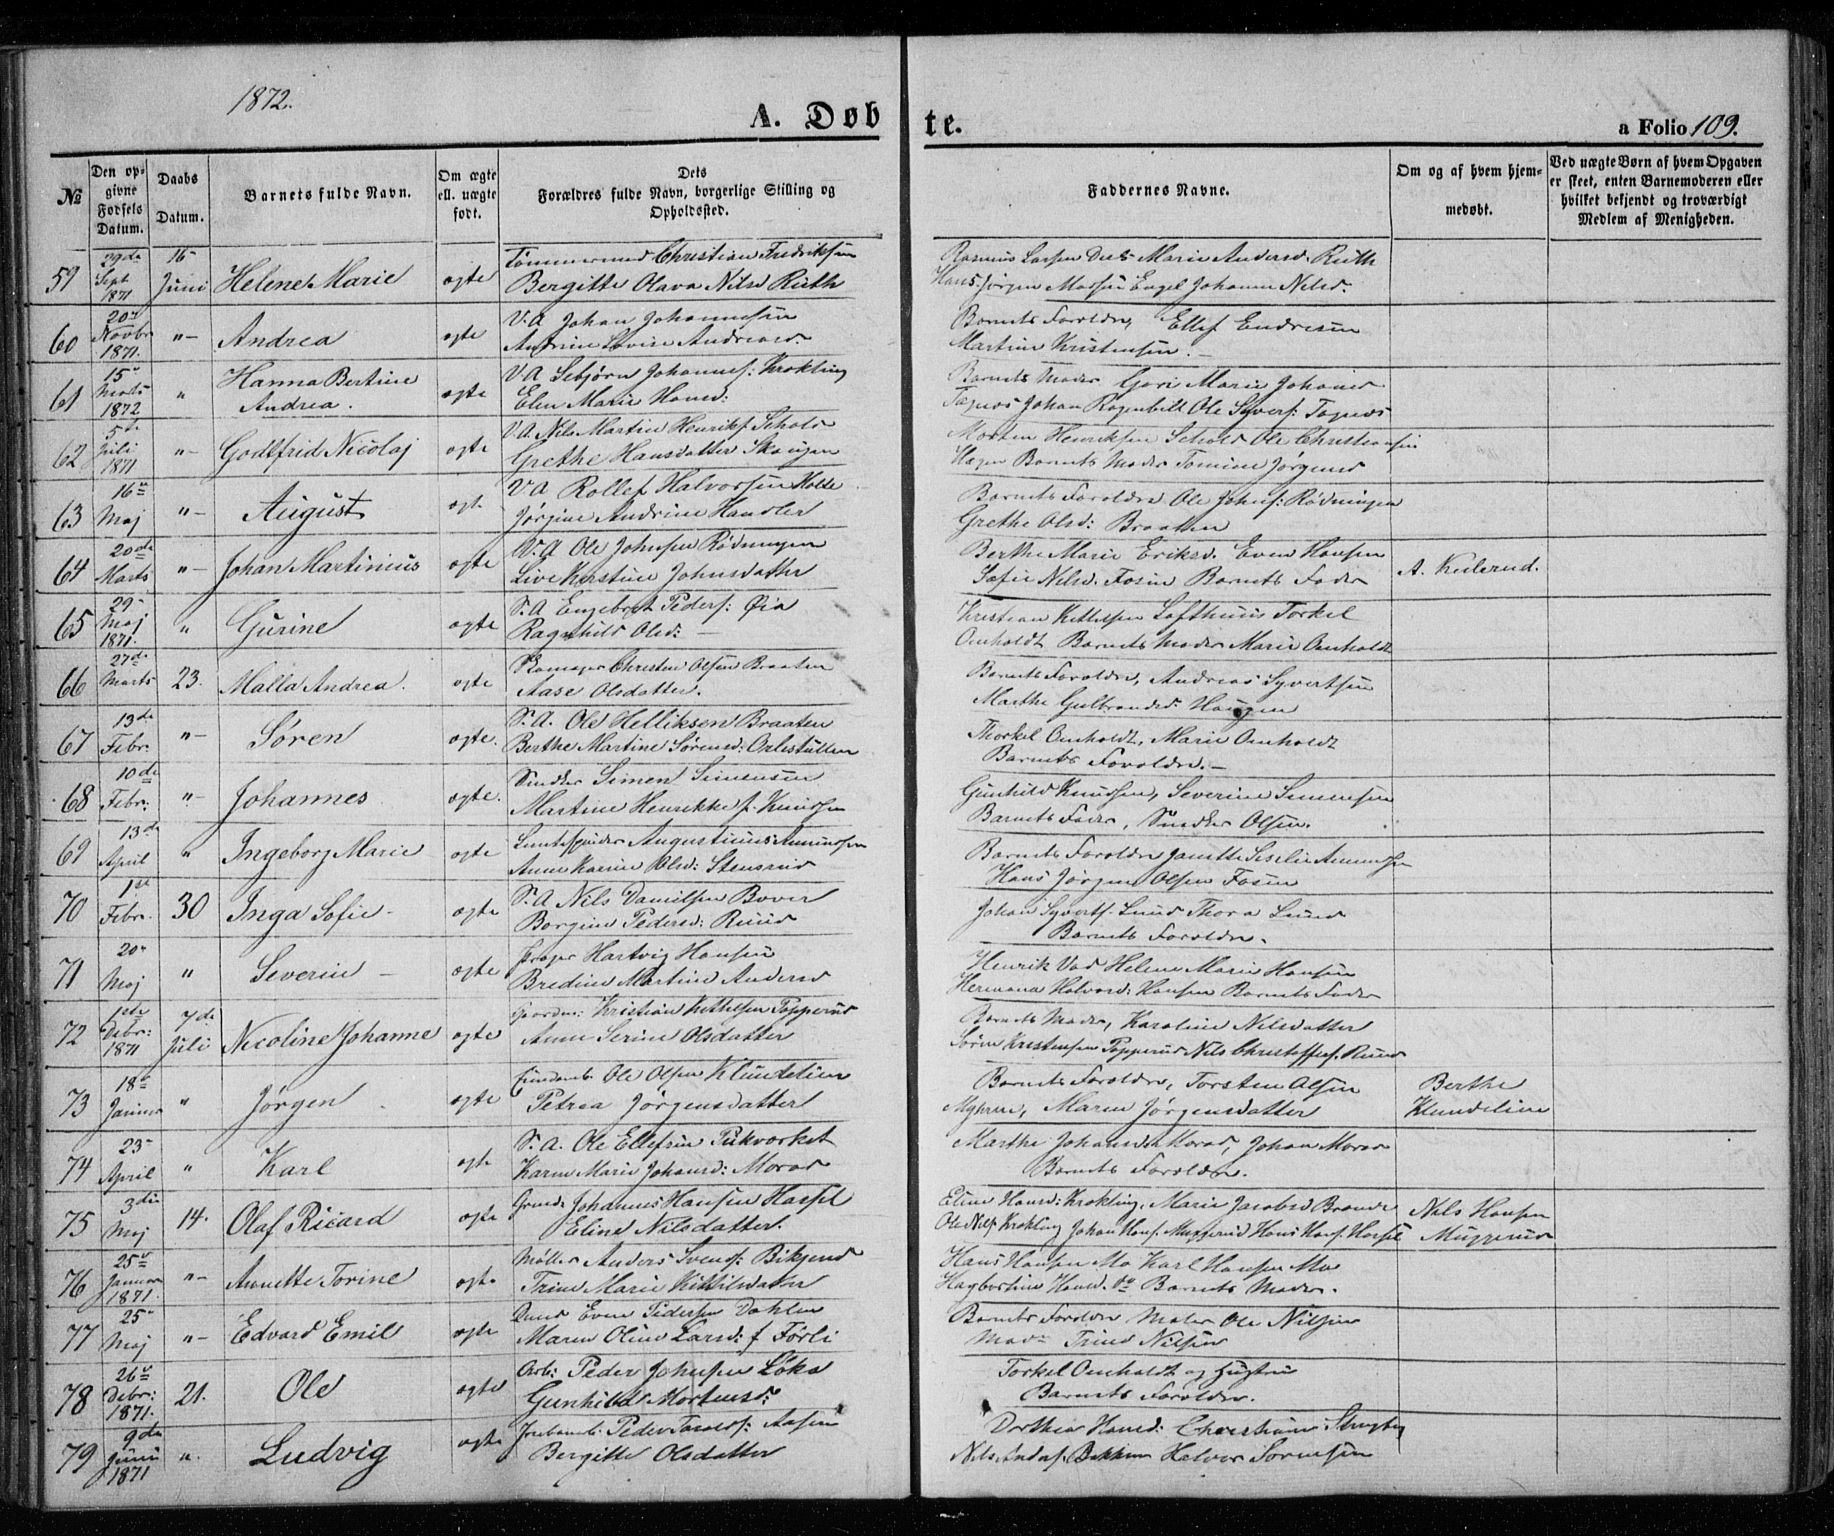 1872.
A. Døbte.
a Folio 109.
№
Den opgivne Fødsels Datum.
Daabs Datum.
Barnets fulde Navn.
Om ægte ell. uægte født.
Dets Forældres fulde Navn, borgerlige Stilling og Opholdssted.
Faddernes Navne.
Om og af hvem hjemmedøbt.
Ved uægte Børn af hvem Opgaven er skeet, enten Barnemoderen eller hvilket bekjendt og troværdigt Medlem af Menigheden.
59 29de Sept 1871 16 Juni Helene Marie ægte Tømmermand Christian Fredriksen
Bergitte Olava Nilsd Ruth
Rasmus Larsen Marie Andersd. Ruth
Hans Jørgen Engel Johanne Nilsd.
60 20 Novbr 1871. "- Andrea ægte V.A Johan Johannesen
Andrine Lovise Andreasd.
Barnets Foreldre, Ellef Endresen
Martine Kristensen.
61 15 Marts 1872 " Hanna Bertine Andrea. ægte V.A Sebjørn Johannes: Krokling
Elen Marie Hansd:
Barnets Moder Gori Marie Johansd
Johan Ole Syvers:
62 5te Juli 1871 "- Godtfrid Nicolaj ægte V.A. Nils Martin Henriks.
Grethe Hansdatter Skougen
Morten Henriksen Ole Christiansen
Hagen Barnets Moder Tomine Jørgensd
63 16 Maj "- August ægt. V.A Rollef Halvorsen Holte
Jørgine Andrine
Barnets Foreldre Ole Johns: Rødningen
Grethe Olsd: Braatten
64 20de Marts "- Johan Martinius ægte V.A Ole Johnsen Rødningen
Live Kirstine Johnsdatter
Berthe Marie Eriksd. Even Hansen
Sofie Nilsd. Fosen Barnets Fader
A. Kulerud.
65 29 Maj 1871. " Gurine ægte S.A Engebret Peders: Øia
Ragnhild Olsd:
Kristian Kittelsen Lofthuus Torkel
Omholdt Barnets Moder Marie Omholdt
66 27de Marts 23. Malla Andrea. ægte Skomager Christen Olsen Braaten
Aase Olsdatter.
Barnets Foreldre, Andreas Syvertsen
Marthe Gulbrandsd Haugen
67 13de Febr. "- Søren ægte. S.A. Ole Helliksen Braaten
Berthe Martine Sørensd:
Thorkel Omholdt, Marie Omholdt
Barnets Foreldre.
68 10de Febr: "- Johannes ægte. Snedker Simen Simensen
Martine Henrikke f. Knudsen
Gunhild Knudsen, Severine Simensen
Barnets Fader, Snedker Olsen.
69 13de April " Ingeborg Marie ægte Augustinus Amundsen
Anne Karine Olsd: Stensrud
Barnets Foreldre Janette Seselie Amundsen
Hans Jørgen Olsen Fosen
70 1ste Febr. 30 Inga Sofie ægte S.A Nils Danielsen
Borgine Pedersd: Ruud
Johan Syverts. Lund Thora Lund
Barnets Foreldre.
71 20 Maj " Severin ægte Hartvig Hansen
Bredine Martine Andersd
Henrik Vad Helene Marie Hansen
Hermana Halvorsd: Hansen Barnets Fader
72 1ste Debr: 1871 7de Juli Nicoline Johanne ægte Gaardm: Kristian Kittelsen Popperud
Anne Serine Olsdatter
Barnets Moder, Karoline Nilsdatter
Søren Kristensen Popperud Nils Christoffers. Ruud
73 18 Januar " Jørgen ægte Ole Olsen Klundelien
Petrea Jørgensdatter
Barnets Foreldre, Torsten Olsen
Myhren, Maren Jørgensdatter
Berthe Klundelien
74 23 April " Karl ægte S.A. Ole Ellefsen
Karen Marie Johansd: Morud
Marthe Johansd Morud, Johan Morud
Barnets Foreldre.
75 3die Maj 14. Olaf Ricard ægte Grundb Johannes Hansen Hassel
Eline Nilsdatter.
Eline Hansd: Krokling, Marie Jacobsd
Ole Nils Krokling Johan Hans. Muggerud Hans Hans. Hassel
Nils Hansen Muggerud
76 25 Januar 1871. "- Annette Torine ægte Møller Anders Svends: Bikjend
Trine Marie Kittilsdatter
Hans Hansen Mo Karl Hansen Mo
Hagbortine Hansd. do Barnets Moder.
77 25 Maj "- Edvard Emil ægte Even Pedersen Dahlen
Maren Oline Larsd: f. Førli
Barnets Foreldre Maler Ole Nilsen
Mad: Trine Nilsen
78 26 Debr: 1871. 21. Ole ægte Arb: Peder Johnsen Løka
Gunhild Mortensd:
Torkel Omholdt og Hustru
Barnets Foreldre.
79 9de Juni 1871 ". Ludvig ægte Peder Aasen
Bergitte Olsdatter
Dorthea Hansd: Christiane
Nils Anders. Bekken Halvor Sørensen